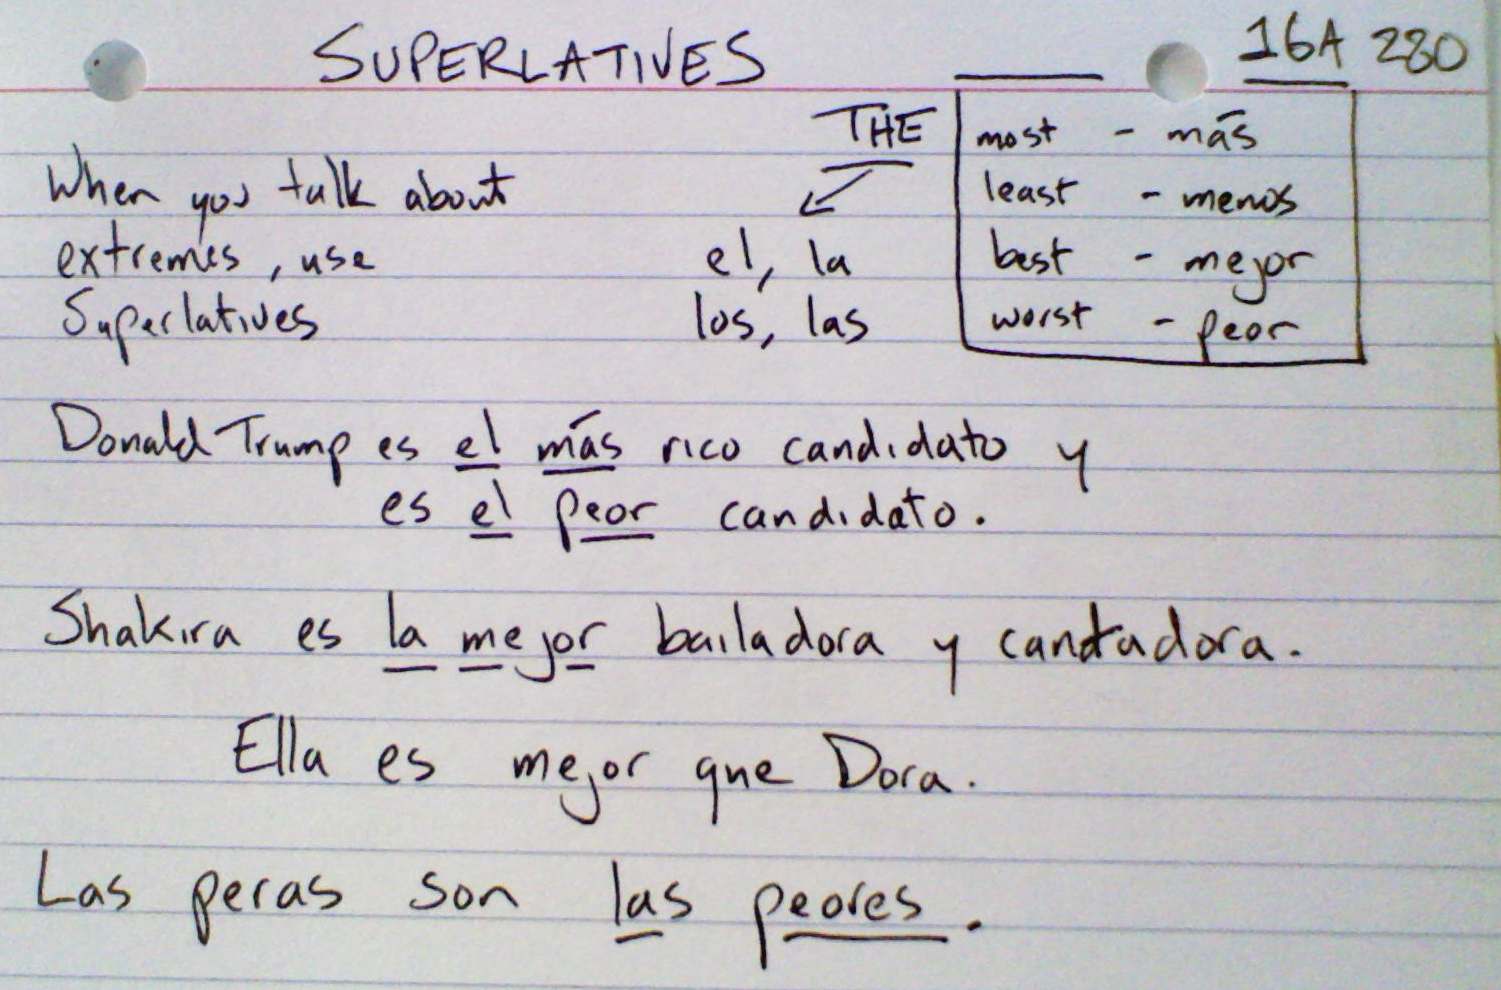 SUPERLATIVES
16A 230
THE
most - más
least - menos
best - mejor
worst - peor
When you talk about
extremes, use
Superlatives
el, la
los, las
Donald Trump es el más rico candidato y
es el peor candidato.
Shakira es la mejor bailadora y cantadora.
Ella es mejor que Dora.
Las peras son las peores.